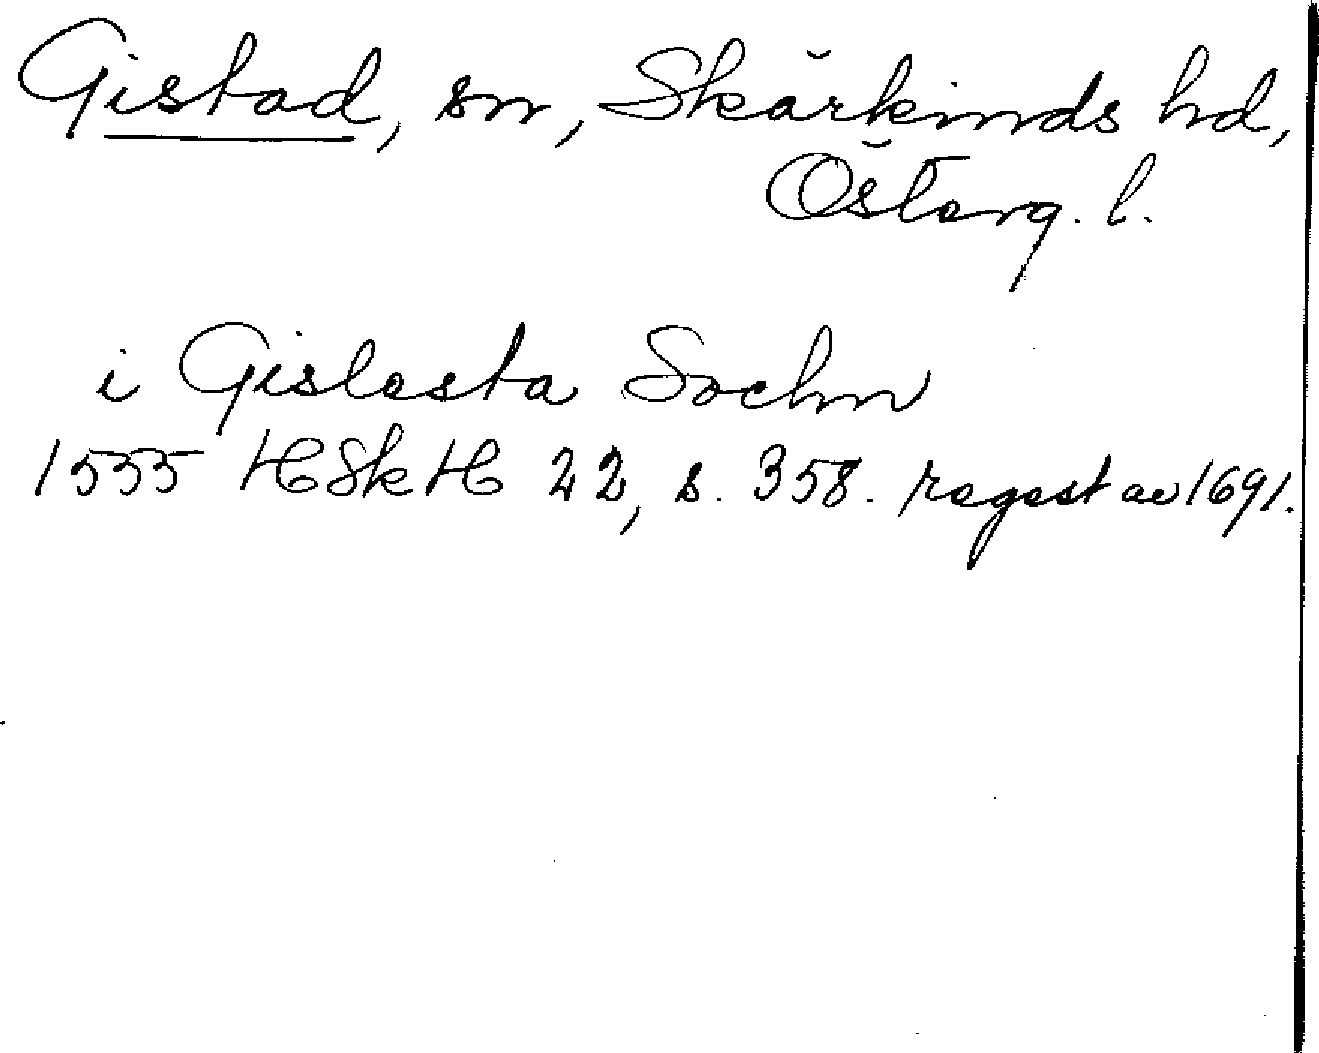 Gistad, sn, Skärkinds hd,
Österg. l.
i Gislesta Sochn
1535 HSkH 22, s. 358. regest av 1691.